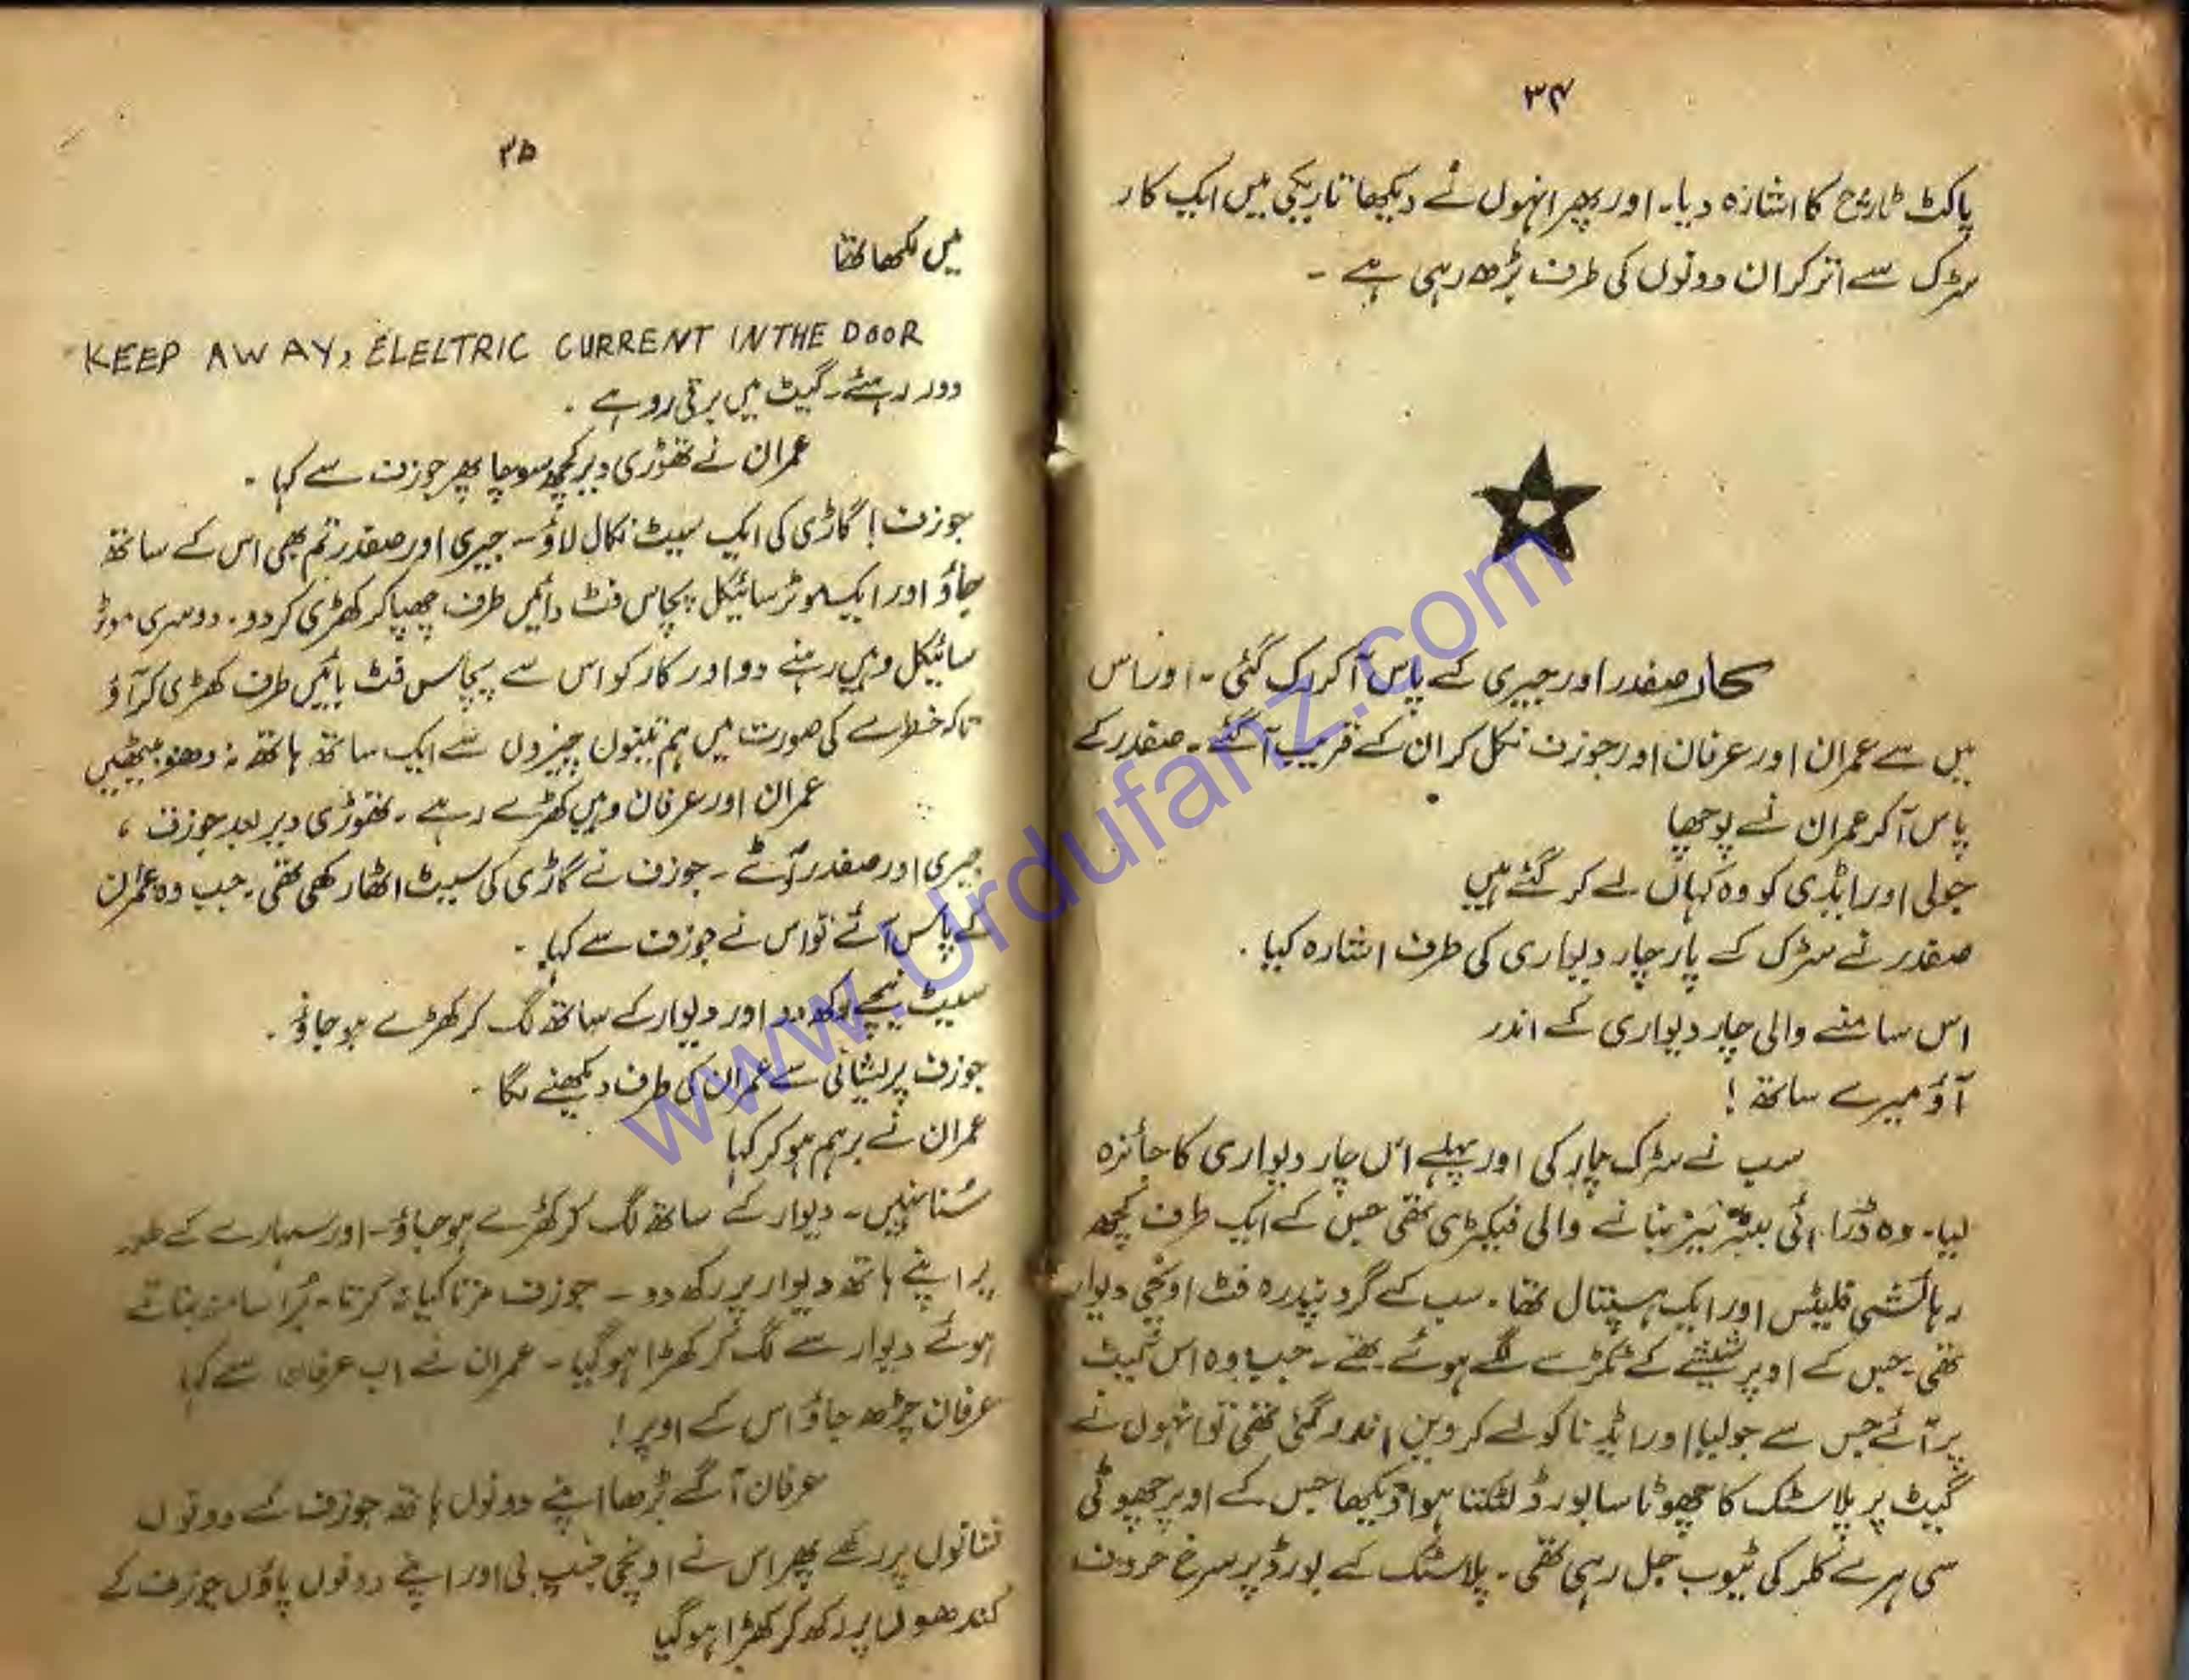 ۳۴
پاکٹ ٹارچ کا اشارہ دیا۔ اور پھر انہوں نے دیکھا تاریکی میں ایک کار
سڑک سے اتر کر ان دونوں کی طرف بڑھ رہی ہے ۔
کار صفدر اور جیری کے پاس آ کر رک گئی ۔ اور اس
میں سے عمران اور عرفان اور جوزف نکل کر ان کے قریب آ گئے ۔ صفدر کے
پاس آ کر عمران نے پوچھا
جولی اور ایڈی کو وہ کہاں لے کر گئے ہیں
صفدر نے سڑک کے پار چار دیواری کی طرف اشارہ کیا ۔
اس سامنے والی چار دیواری کے اندر
آؤ میرے ساتھ !
سب نے سڑک پار کی اور پہلے اس چار دیواری کا جائزہ
لیا۔ وہ ڈرائی بیٹریز بنانے والی فیکٹری تھی جس کے ایک طرف کچھ
رہائشی فلیٹس اور ایک ہسپتال تھا ۔ سب کے گرد پندرہ فٹ اونچی دیوار
تھی ۔ جس کے اوپر شیشے کے ٹکڑے لگے ہوئے تھے ۔ جب وہ اس گیٹ
پر آئے جس سے جولیا اور ایڈنا کو لے کر وین اندر گئی تھی تو انہوں نے
گیٹ پر پلاسٹک کا چھوٹا سا بورڈ لٹکتا ہوا دیکھا جس کے اوپر چھوٹی
سی ہرے کلر کی ٹیوب جل رہی تھی ۔ پلاسٹک کے بورڈ پر سرخ حروف
۳۵
میں لکھا تھا
KEEP AWAY, ELELTRIC CURRENT IN THE DOOR
دور رہئے ۔ گیٹ میں برقی رو ہے ۔
عمران نے تھوڑی دیر کچھ سوچا پھر جوزف سے کہا ۔
جوزف ! گاڑی کی ایک سیٹ نکال لاؤ ۔ جیری اور صفدر تم بھی اس کے ساتھ
جاؤ اور ایک موٹر سائیکل پچاس فٹ دائیں طرف چھپا کر کھڑی کر دو ۔ دوسری موٹر
سائیکل وہیں رہنے دو اور کار کو اس سے پچاس فٹ بائیں طرف کھڑی کر آؤ
تاکہ خطرے کی صورت میں ہم تینوں چیزوں سے ایک ساتھ ہاتھ نہ دھو بیٹھیں
عمران اور عرفان وہیں کھڑے رہے ۔ تھوڑی دیر بعد جوزف ،
جیری اور صفدر آئے ۔ جوزف نے گاڑی کی سیٹ اٹھا رکھی تھی ۔ جب وہ عمران
کے پاس آئے تو اس نے جوزف سے کہا ۔
سیٹ نیچے رکھ دو اور دیوار کے ساتھ لگ کر کھڑے ہو جاؤ ۔
جوزف پریشانی سے عمران کی طرف دیکھنے لگا ۔
عمران نے برہم ہو کر کہا
سُنا نہیں ۔ دیوار کے ساتھ لگ کر کھڑے ہو جاؤ ۔ اور سہارے کے طور
پر اپنے ہاتھ دیوار پر رکھ دو ۔ جوزف مرتا کیا نہ کرتا ۔ بُرا سا منہ بناتے
ہوئے دیوار سے لگ کر کھڑا ہو گیا ۔ عمران نے اب عرفان سے کہا
عرفان چڑھ جاؤ اس کے اوپر !
عرفان آگے بڑھا اپنے دونوں ہاتھ جوزف کے دونوں
شانوں پر رکھے پھر اس نے اونچی جمپ لی اور اپنے دونوں پاؤں جوزف کے
کندھوں پر رکھ کر کھڑا ہو گیا
www.Urdufanz.com